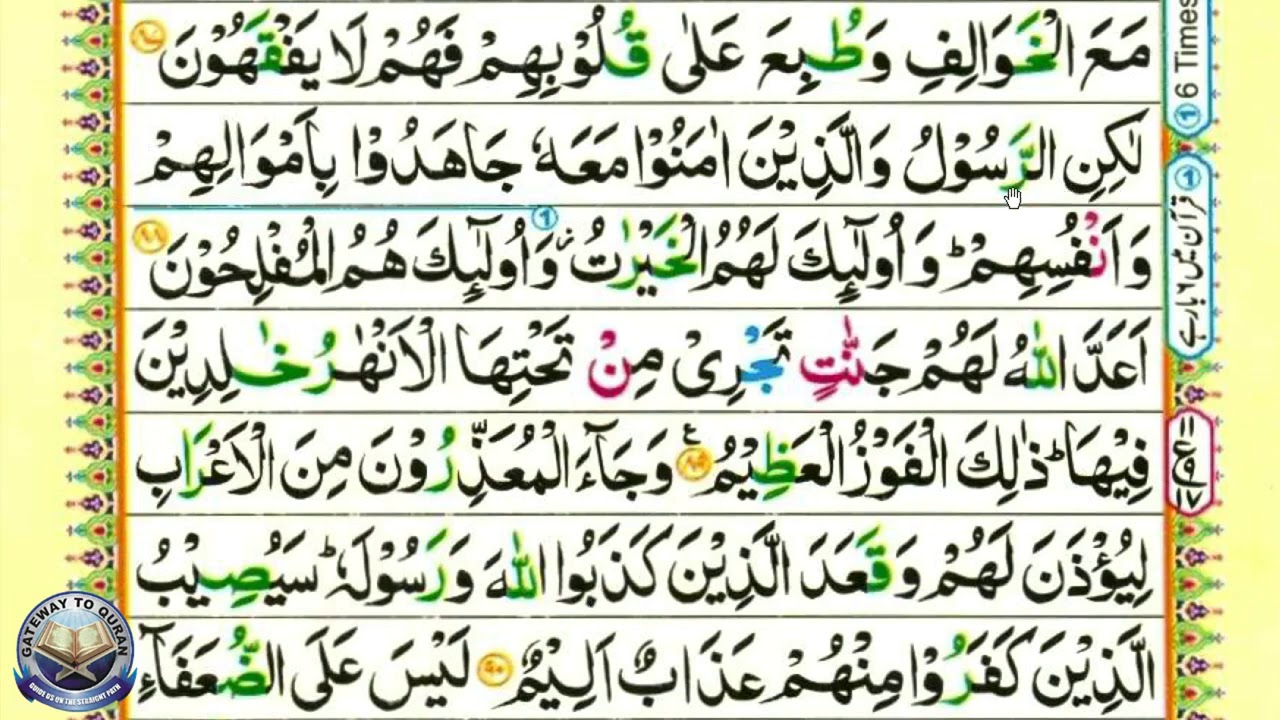 مَعَ الْخَوَالِفِ وَطُبِعَ عَلٰى قُلُوْبِهِمْ فَهُمْ لَا يَفْقَهُوْنَ ۸۷
لٰكِنِ الرَّسُوْلُ وَالَّذِيْنَ اٰمَنُوْا مَعَهٗ جَاهَدُوْا بِاَمْوَالِهِمْ
وَاَنْفُسِهِمْ ؕ وَاُولٰٓئِكَ لَهُمُ الْخَيْرٰتُ ۫ وَاُولٰٓئِكَ هُمُ الْمُفْلِحُوْنَ ۸۸
اَعَدَّ اللّٰهُ لَهُمْ جَنّٰتٍ تَجْرِىْ مِنْ تَحْتِهَا الْاَنْهٰرُ خٰلِدِيْنَ
فِيْهَا ؕ ذٰلِكَ الْفَوْزُ الْعَظِيْمُ ۸۹ ع وَجَآءَ الْمُعَذِّرُوْنَ مِنَ الْاَعْرَابِ
لِيُؤْذَنَ لَهُمْ وَقَعَدَ الَّذِيْنَ كَذَبُوا اللّٰهَ وَرَسُوْلَهٗ ؕ سَيُصِيْبُ
الَّذِيْنَ كَفَرُوْا مِنْهُمْ عَذَابٌ اَلِيْمٌ ۹۰ لَيْسَ عَلَى الضُّعَفَآءِ
① 6 Times
① قرآن میں ۶ بار ہے
ع
GATEWAY TO QURAN
GUIDE US ON THE STRAIGHT PATH